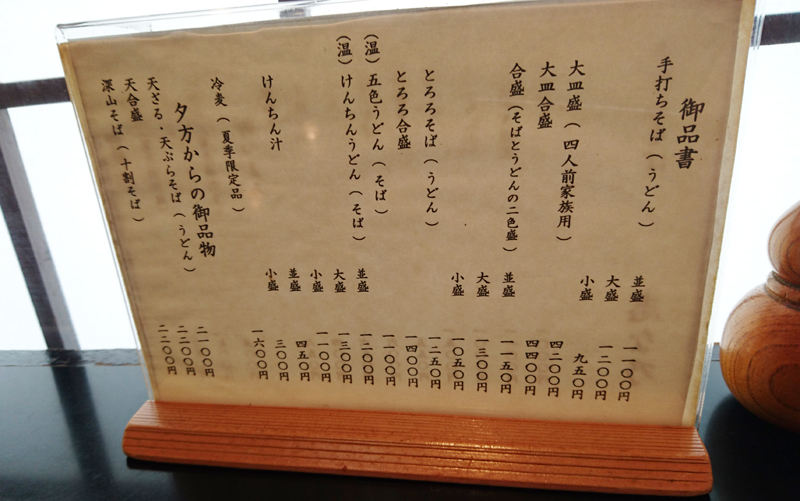 御品書
手打ちそば（うどん） 並盛 一一〇〇円
大盛 一二〇〇円
小盛 九五〇円
大皿盛（四人前家族用） 四二〇〇円
大皿合盛 四四〇〇円
合盛（そばとうどんの二色盛） 並盛 一一五〇円
大盛 一三〇〇円
小盛 一〇五〇円
とろろそば（うどん） 一二五〇円
とろろ合盛 一四〇〇円
（温）五色うどん（そば） 一一〇〇円
（温）けんちんうどん（そば） 並盛 一二〇〇円
大盛 一三〇〇円
小盛 一一〇〇円
けんちん汁 並盛 四五〇円
小盛 三〇〇円
冷麦（夏季限定品） 一六〇〇円
夕方からの御品物
天ざる・天ぷらそば（うどん） 二一〇〇円
天合盛 二二〇〇円
深山そば（十割そば） 二二〇〇円